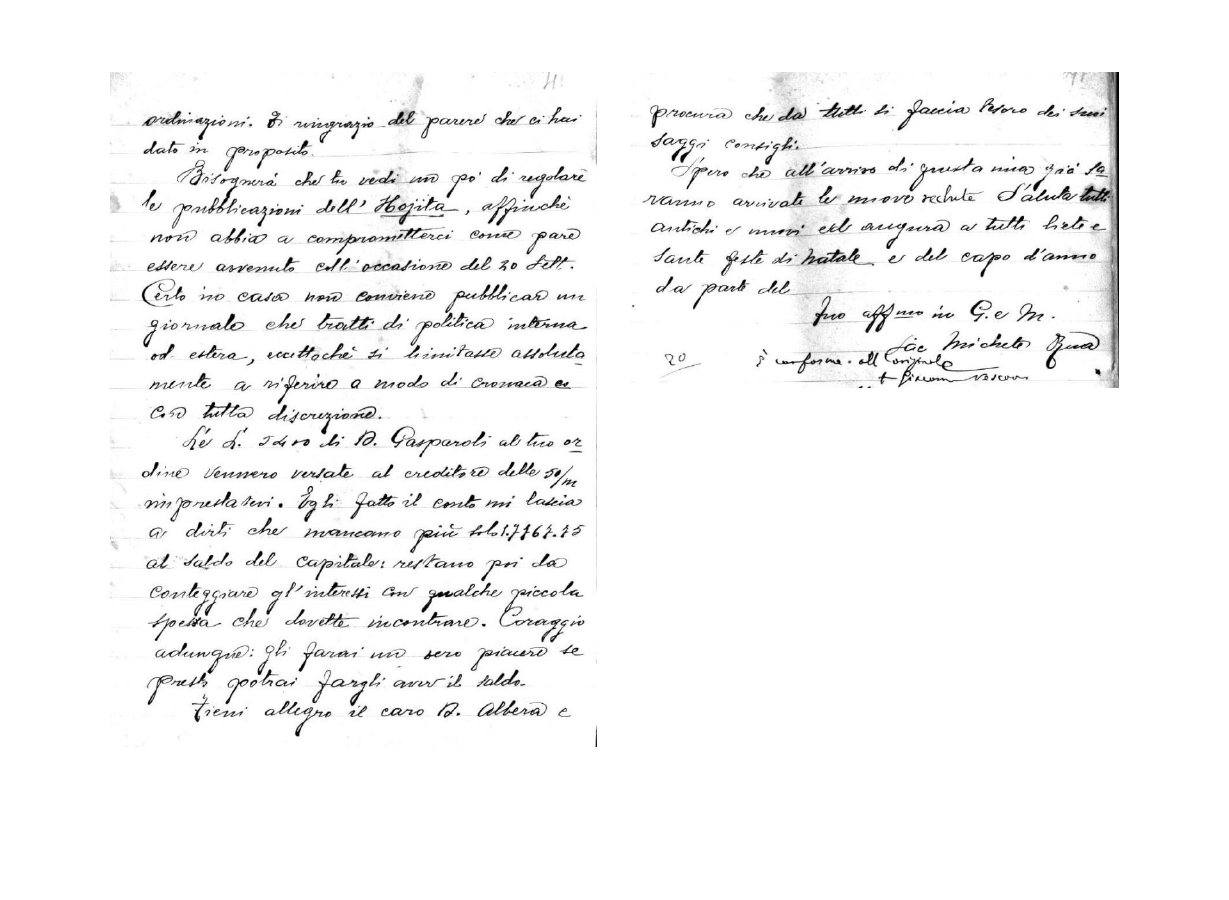 ordinazioni. Ti ringrazio del parere che ci hai
dato in proposito.
Bisognerà che tu vedi un po' di regolare
le pubblicazioni dell' Hojita, affinchè
non abbia a comprometterci come pare
essere avvenuto coll'occasione del 20 Sett.
Certo in casa non conviene pubblicar un
giornale che tratti di politica interna
od estera, eccettochè si limitasse assoluta
mente a riferire a modo di cronaca e
con tutta discrezione.
Le L. 5400 di D. Gasparoli al tuo or
dine vennero versate al creditore delle 50/m
imprestatevi. Egli fatto il conto mi lascia
a dirti che mancano più solo
al saldo del capitale: restano poi da
conteggiare gl'interessi con qualche piccola
spesa che dovette incontrare. Coraggio
adunque: gli farai un vero piacere se
presto potrai fargli aver il saldo.
Tieni allegro il caro D. Albera e
procura che da tutti si faccia tesoro dei suoi
saggi consigli.
Spero che all'arrivo di questa mia già sa
ranno arrivate le nuove reclute Saluta tutti
antichi e nuovi ed augura a tutti liete e
sante feste di Natale e del capo d'anno
da parte del
Tuo affmo in G. e M.
Sac Michele Rua
20
è conforme all'originale
+ Giacomo vescovo